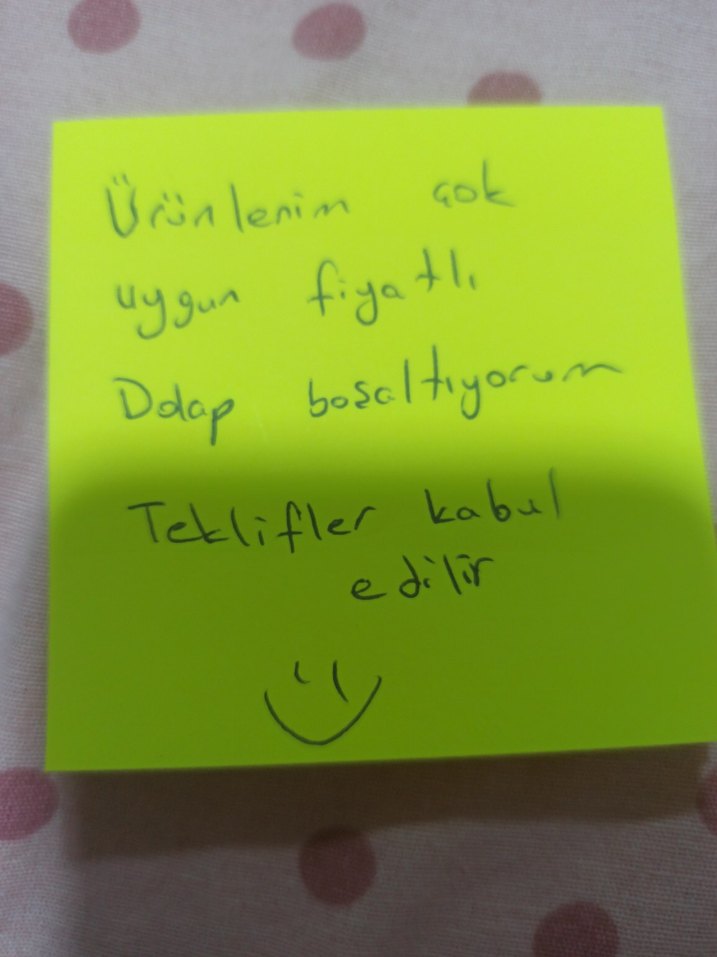 Ürünlerim çok
uygun fiyatlı
Dolap boşaltıyorum
Teklifler kabul
edilir